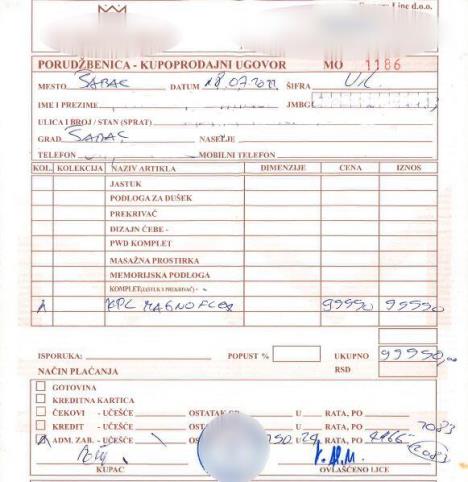 Line d.o.o.
PORUDŽBENICA - KUPOPRODAJNI UGOVOR MO 1186
MESTO ŠABAC DATUM 18.07. ŠIFRA
IME I PREZIME JMBG
ULICA I BROJ / STAN (SPRAT)
GRAD ŠABAC NASELJE
TELEFON MOBILNI TELEFON
KOL. KOLEKCIJA NAZIV ARTIKLA DIMENZIJE CENA IZNOS
JASTUK
PODLOGA ZA DUŠEK
PREKRIVAČ
DIZAJN ĆEBE -
PWD KOMPLET
MASAŽNA PROSTIRKA
MEMORIJSKA PODLOGA
KOMPLET (JASTUK I PREKRIVAČ) -
1 KPL MAGNOFLEX 99990 99990
ISPORUKA: POPUST % UKUPNO 99990,00
RSD
NAČIN PLAĆANJA
GOTOVINA
KREDITNA KARTICA
ČEKOVI - UČEŠĆE OSTATAK OD U RATA, PO
KREDIT - UČEŠĆE U RATA, PO 2083
ADM. ZAB. - UČEŠĆE U 24 RATA, PO 4166 2083
KUPAC OVLAŠĆENO LICE